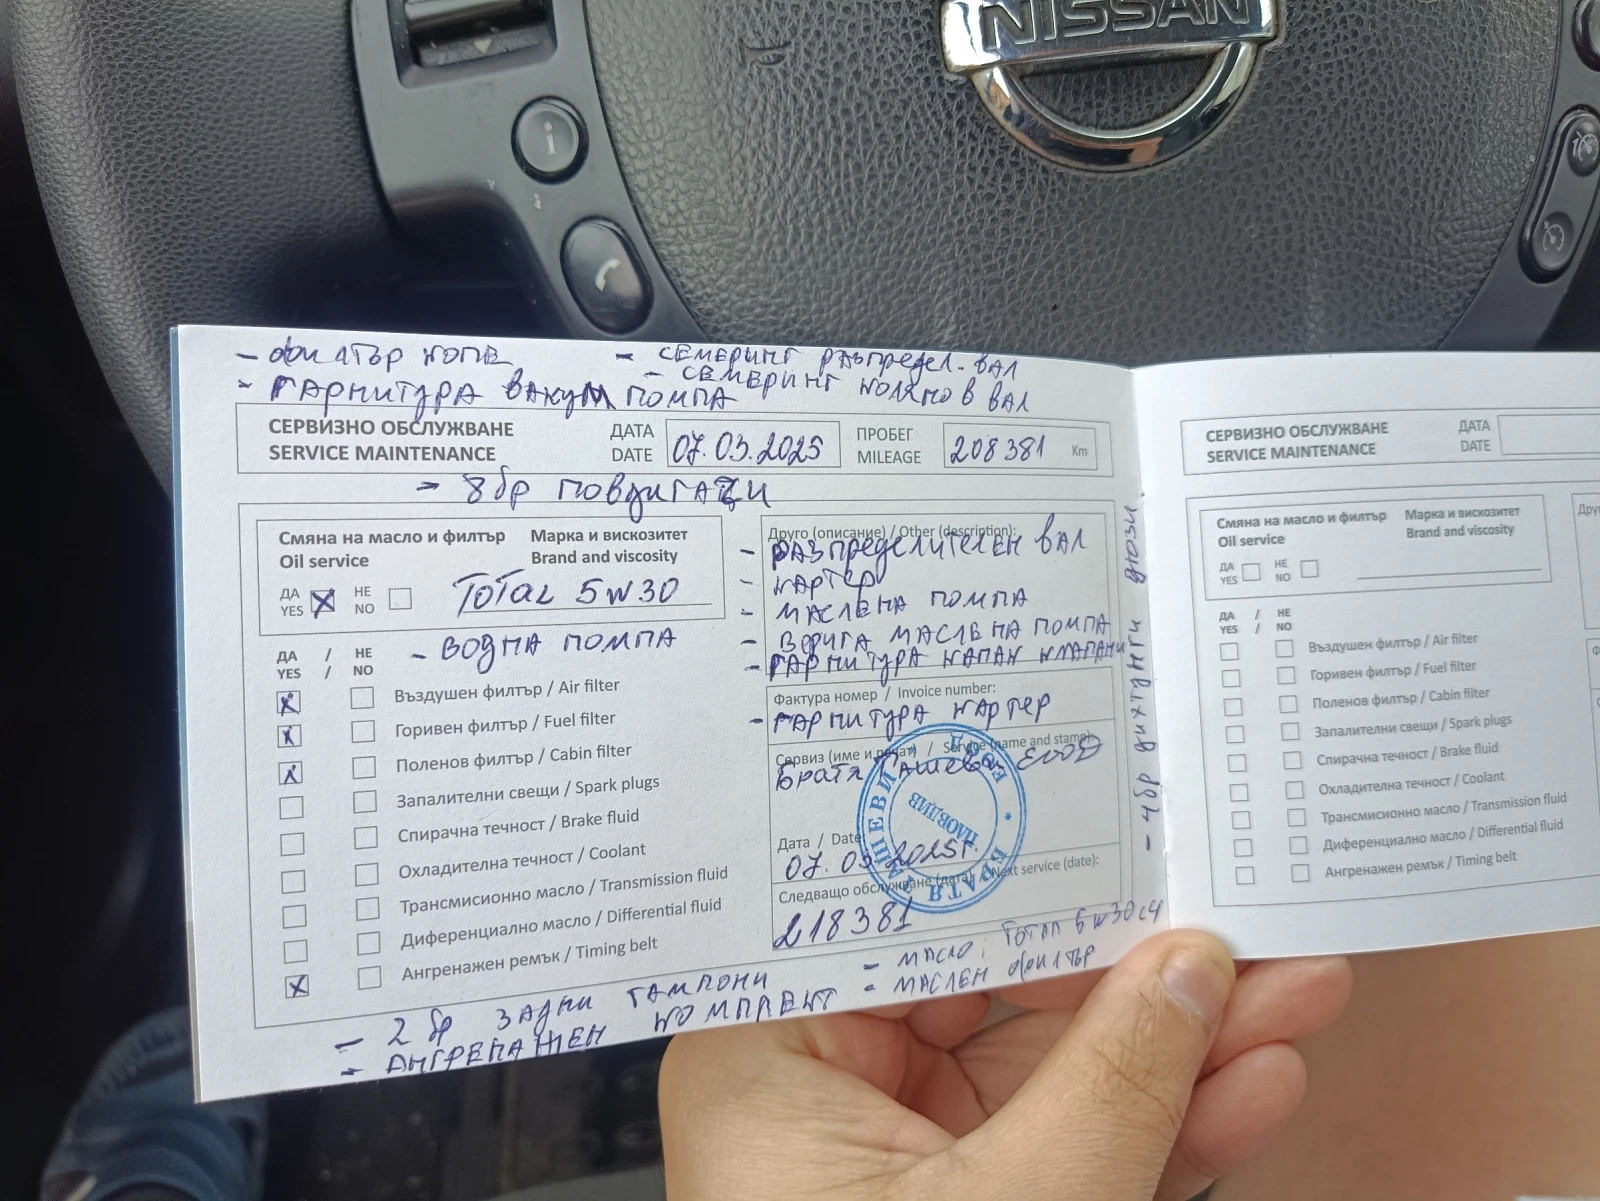 NISSAN
- филтър копе
- гарнитура вакум помпа
- семеринг разпредел. вал
- семеринг колянов вал
СЕРВИЗНО ОБСЛУЖВАНЕ
SERVICE MAINTENANCE
ДАТА
DATE
07.03.2025
ПРОБЕГ
MILEAGE
208381 Km
- 8 бр повдигачи
Смяна на масло и филтър
Oil service
Марка и вискозитет
Brand and viscosity
ДА
YES
X
НЕ
NO
TOTAL 5W30
- водна помпа
ДА / НЕ
YES / NO
X Въздушен филтър / Air filter
X Горивен филтър / Fuel filter
X Поленов филтър / Cabin filter
Запалителни свещи / Spark plugs
Спирачна течност / Brake fluid
Охладителна течност / Coolant
Трансмисионно масло / Transmission fluid
Диференциално масло / Differential fluid
X Ангренажен ремък / Timing belt
Друго (описание) / Other (description):
- разпределителен вал
- картер
- маслена помпа
- верига маслена помпа
- гарнитура капак клапани
Фактура номер / Invoice number:
- гарнитура картер
Сервиз (име и печат) / Service (name and stamp):
Братя Гашеви ЕООД
БРАТЯ ГАШЕВИ ЕООД
ПЛОВДИВ
Дата / Date
07.03.2025г.
Следващо обслужване (дата) / Next service (date):
218381
- 2 бр задни тампони
- ангренажен комплект
- масло: Тотал 5w30 c4
- маслен филтър
- 4бр дихтунги дюзи
СЕРВИЗНО ОБСЛУЖВАНЕ
SERVICE MAINTENANCE
ДАТА
DATE
Смяна на масло и филтър
Oil service
Марка и вискозитет
Brand and viscosity
ДА
YES
НЕ
NO
ДА / НЕ
YES / NO
Въздушен филтър / Air filter
Горивен филтър / Fuel filter
Поленов филтър / Cabin filter
Запалителни свещи / Spark plugs
Спирачна течност / Brake fluid
Охладителна течност / Coolant
Трансмисионно масло / Transmission fluid
Диференциално масло / Differential fluid
Ангренажен ремък / Timing belt